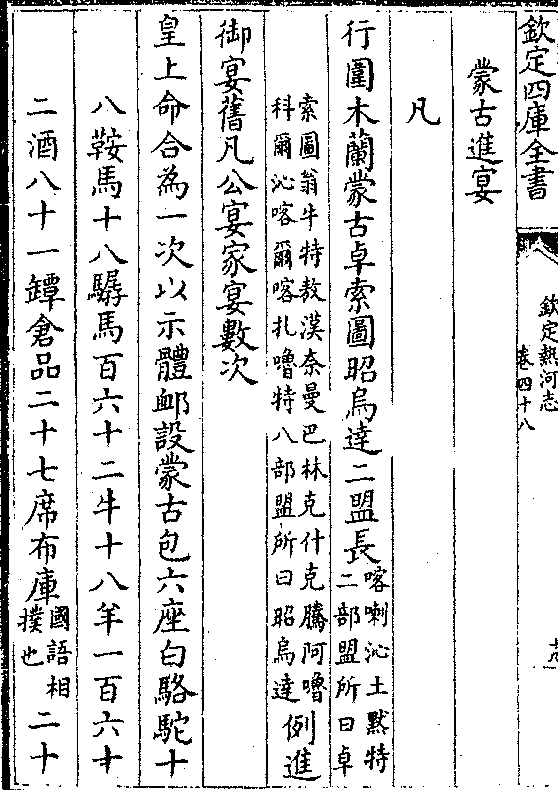 欽定四庫全書
欽定熱河志
卷四十八
蒙古進宴
凡
行圍木蘭蒙古卓索圖昭烏達二盟長
喀喇沁土黙特
二部盟所曰卓
索圖翁牛特敖漢奈曼巴林克什克騰阿嚕
科爾沁喀爾喀扎嚕特八部盟所曰昭烏達
例進
御宴舊凡公宴家宴數次
皇上命合為一次以示體䘏設蒙古包六座白駱駝十
八鞍馬十八驏馬百六十二牛十八羊一百六十
二酒八十一罈食品二十七席布庫
國語相
撲也
二十